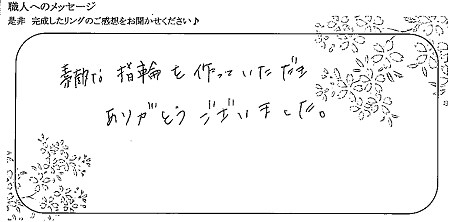 職人へのメッセージ
是非 完成したリングのご感想をお聞かせください♪
素敵な指輪を作っていただき
ありがとうございました。